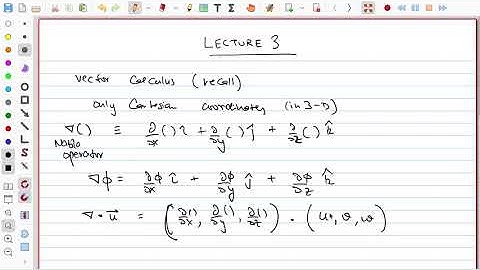 LECTURE 3
vector calculus (recall)
only Cartesian coordinates (in 3-D)
∇() ≡ ∂/∂x () î + ∂/∂y () ĵ + ∂/∂z () k̂
Nabla
operator
∇φ = ∂φ/∂x î + ∂φ/∂y ĵ + ∂φ/∂z k̂
∇·u⃗ = (∂()/∂x, ∂()/∂y, ∂()/∂z) · (u, v, w)